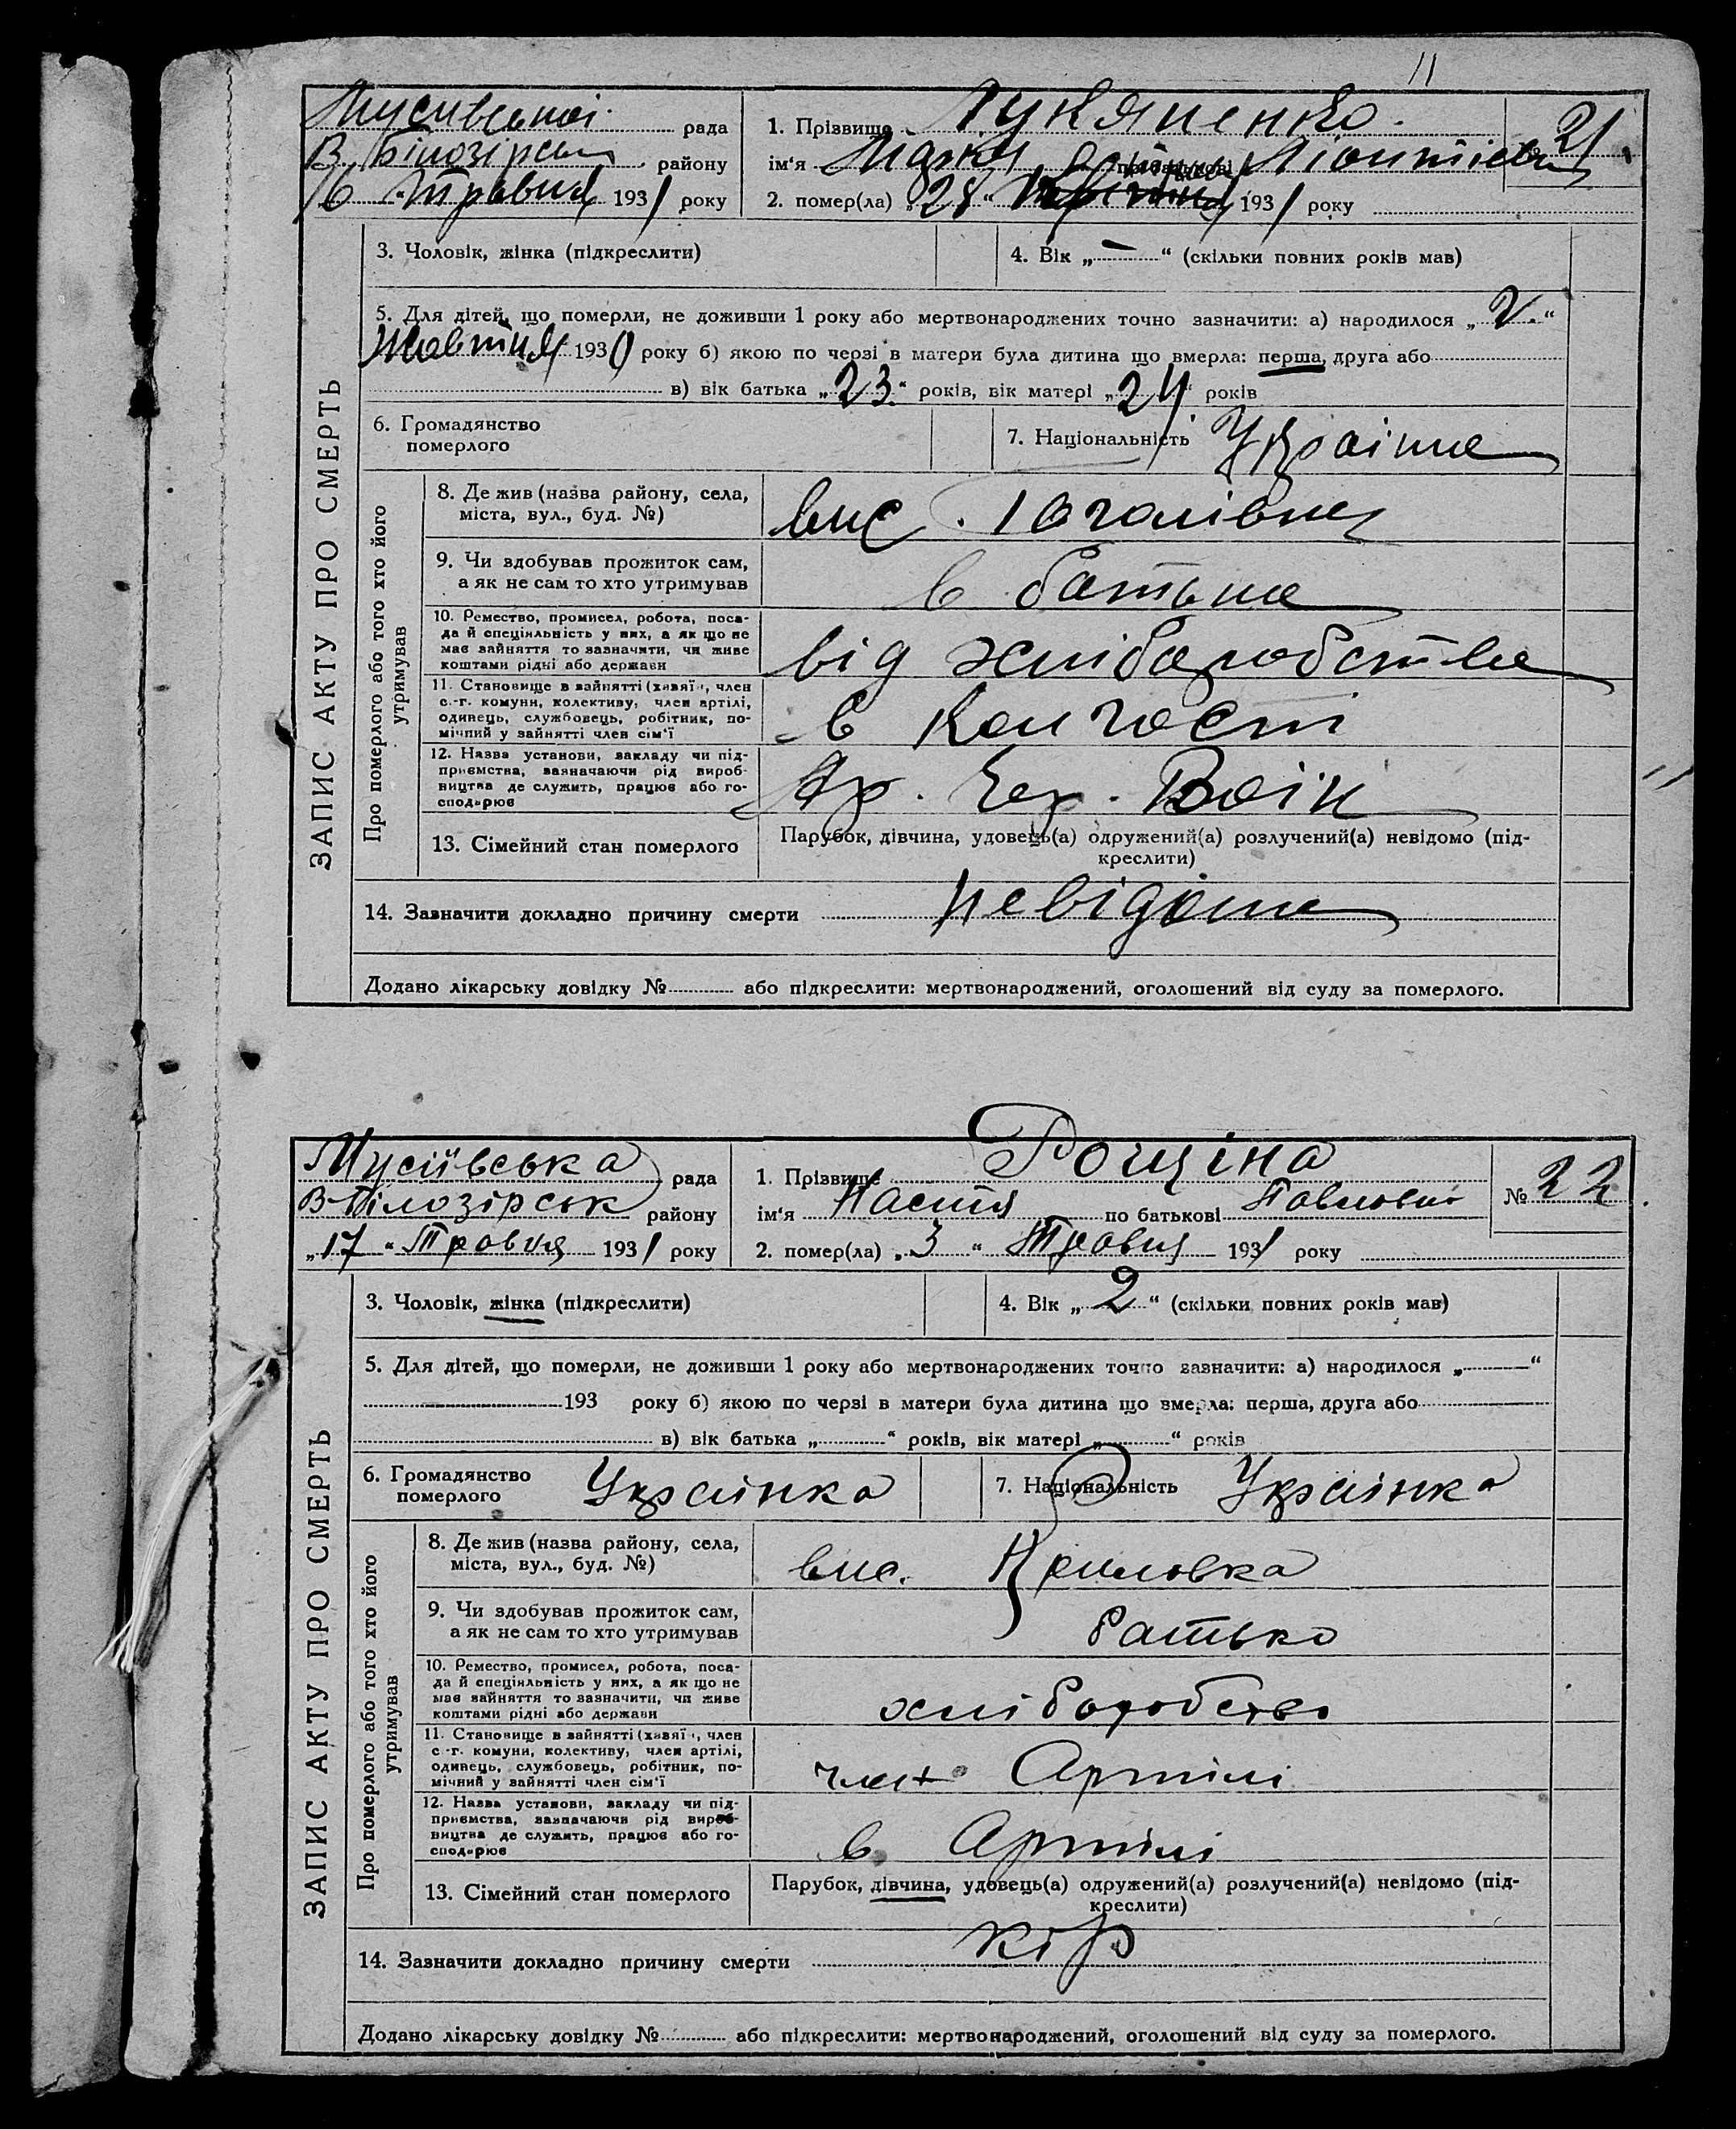 11
рада
1. Прізвище Лукяненко
21
В. Білозірськ району
ім'я по батькові
16 " Травня 1931 року
2. помер(ла) „ 28 " 1931 року
ЗАПИС АКТУ ПРО СМЕРТЬ
3. Чоловік, жінка (підкреслити)
4. Вік „ — " (скільки повних років мав)
5. Для дітей, що померли, не доживши 1 року або мертвонароджених точно зазначити: а) народилося „ 2 "
Жовтня 1930 року б) якою по черзі в матери була дитина що вмерла: перша, друга або
в) вік батька „ 23 " років, вік матері „ 24 " років
6. Громадянство померлого
7. Національність
Про померлого або того хто його утримував
8. Де жив (назва району, села, міста, вул., буд. №)
вис.
9. Чи здобував прожиток сам, а як не сам то хто утримував
в батька
10. Ремество, промисел, робота, посада й спеціяльність у них, а як що не має зайняття то зазначити, чи живе коштами рідні або держави
від хліборобства
11. Становище в зайнятті (хазяїн, член с.-г. комуни, колективу, член артілі, одинець, службовець, робітник, помічний у зайнятті член сім'ї
в колгоспі
12. Назва установи, закладу чи підприємства, зазначаючи рід виробництва де служить, працює або господарює
Ар. Чер. Воїн
13. Сімейний стан померлого
Парубок, дівчина, удовець(а) одружений(а) розлучений(а) невідомо (підкреслити)
14. Зазначити докладно причину смерти невідома
Додано лікарську довідку № або підкреслити: мертвонароджений, оголошений від суду за померлого.
Мусіївська рада
1. Прізвище Рощіна
№ 22
В-Білозірськ району
ім'я Настя по батькові Павловна
„ 17 " Травня 1931 року
2. помер(ла) „ 3 " Травня 1931 року
ЗАПИС АКТУ ПРО СМЕРТЬ
3. Чоловік, жінка (підкреслити)
4. Вік „ 2 " (скільки повних років мав)
5. Для дітей, що померли, не доживши 1 року або мертвонароджених точно зазначити: а) народилося „ — "
193 року б) якою по черзі в матери була дитина що вмерла: перша, друга або
в) вік батька „ " років, вік матері „ " років
6. Громадянство померлого Українка
7. Національність Українка
Про померлого або того хто його утримував
8. Де жив (назва району, села, міста, вул., буд. №)
вис.
9. Чи здобував прожиток сам, а як не сам то хто утримував
батько
10. Ремество, промисел, робота, посада й спеціяльність у них, а як що не має зайняття то зазначити, чи живе коштами рідні або держави
хліборобство
11. Становище в зайнятті (хазяїн, член с.-г. комуни, колективу, член артілі, одинець, службовець, робітник, помічний у зайнятті член сім'ї
член Артілі
12. Назва установи, закладу чи підприємства, зазначаючи рід виробництва де служить, працює або господарює
в Артілі
13. Сімейний стан померлого
Парубок, дівчина, удовець(а) одружений(а) розлучений(а) невідомо (підкреслити)
14. Зазначити докладно причину смерти кір
Додано лікарську довідку № або підкреслити: мертвонароджений, оголошений від суду за померлого.